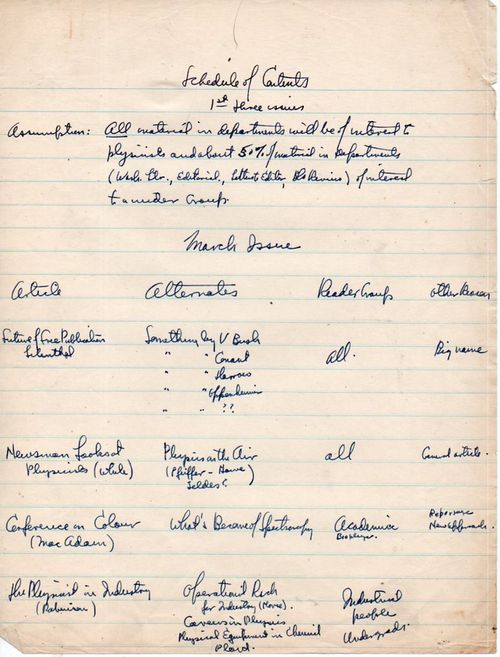 Schedule of Contents
1st three issues
Assumption: All material in departments will be of interest to
physicists and about 50% of material in departments
(Wash. Ltr., Editorial, Letters to Editor, Bk Reviews) of interest
to a wider group.
March Issue
Article Alternates Reader Groups Other Reasons
Future of Free Publication Something by V Bush all. Big name
Lilienthal " " Conant
" " Harrows
" " Oppenheimer
" " ??
Newsman Looks at Physics on the Air all General article.
Physicists (White) (Pfeiffer - Howe)
Seldes?
Conference on Colour What's Become of Spectroscopy Academica
(MacAdam) New Approach.
The Physicist in Industry Operational Rsch Industrial
(Robinson) for Industry (Morse). people
Careers in Physics Undergrads.
Physical Equipment in Chemical
Plant.